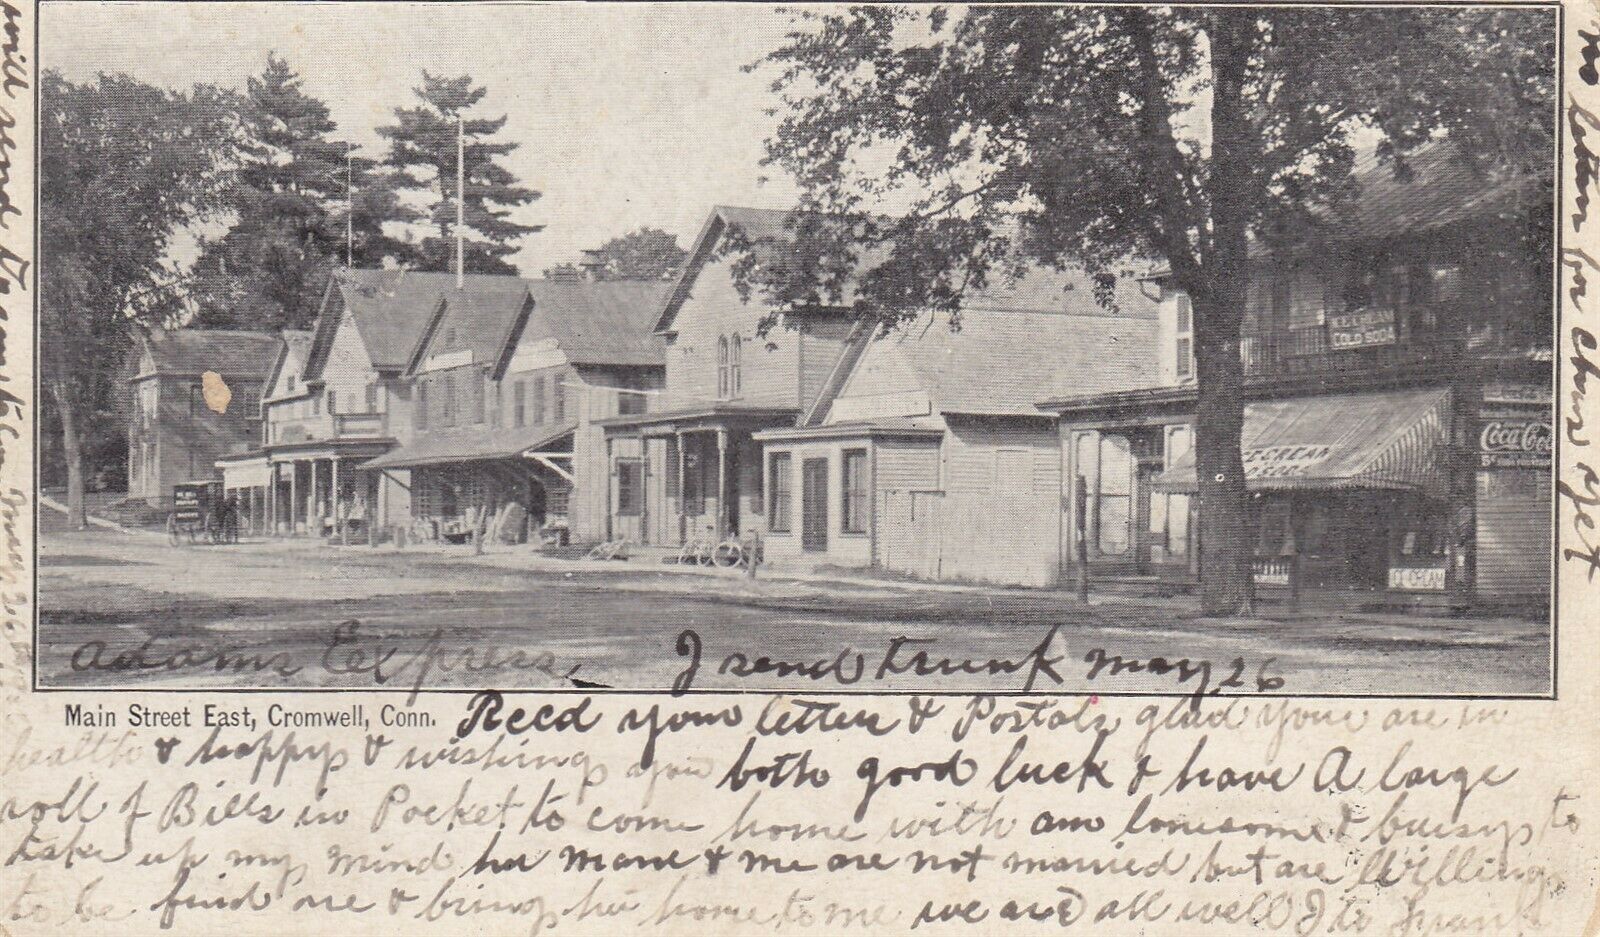 ICE CREAM
COLD SODA
Coca Cola
5¢
ICE CREAM
SODA
ICE CREAM
Adams Express, I send trunk may 26
Main Street East, Cromwell, Conn.
Recd your letter & Postals glad your are in
health & happy & wishing you both good luck & have A large
roll of Bills in Pocket to come home with am lonesome & buisy to
take up my mind her mane & me are not married but are Willing
to be find one & bring her home to me we are all well
no letter for chas yet
will send